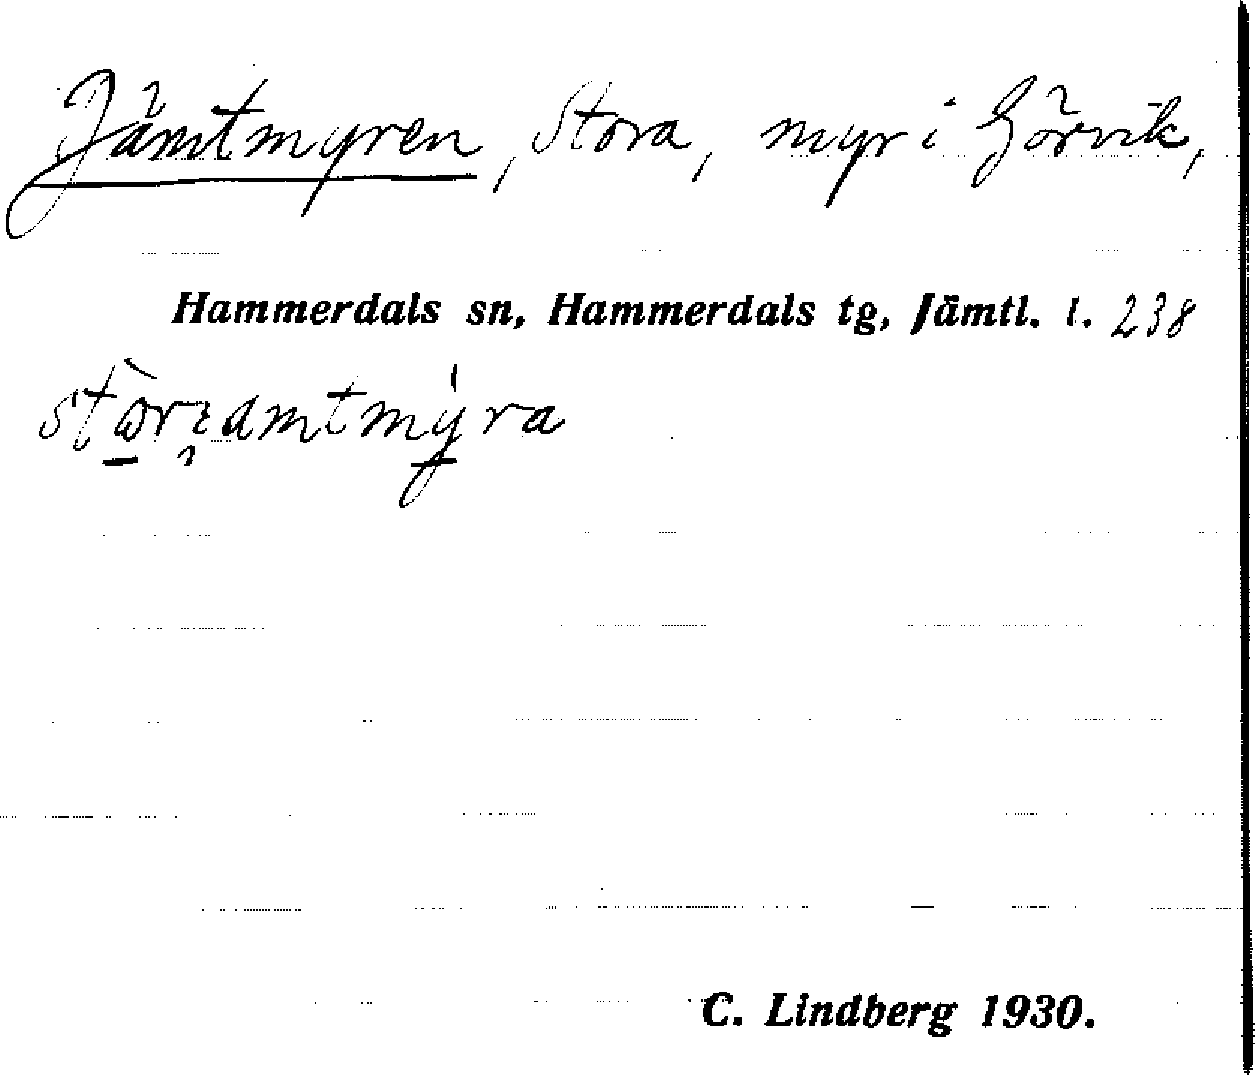 Jämtmyren, Stora, myr i Görvik,
Hammerdals sn, Hammerdals tg, Jämtl. l. 238
C. Lindberg 1930.